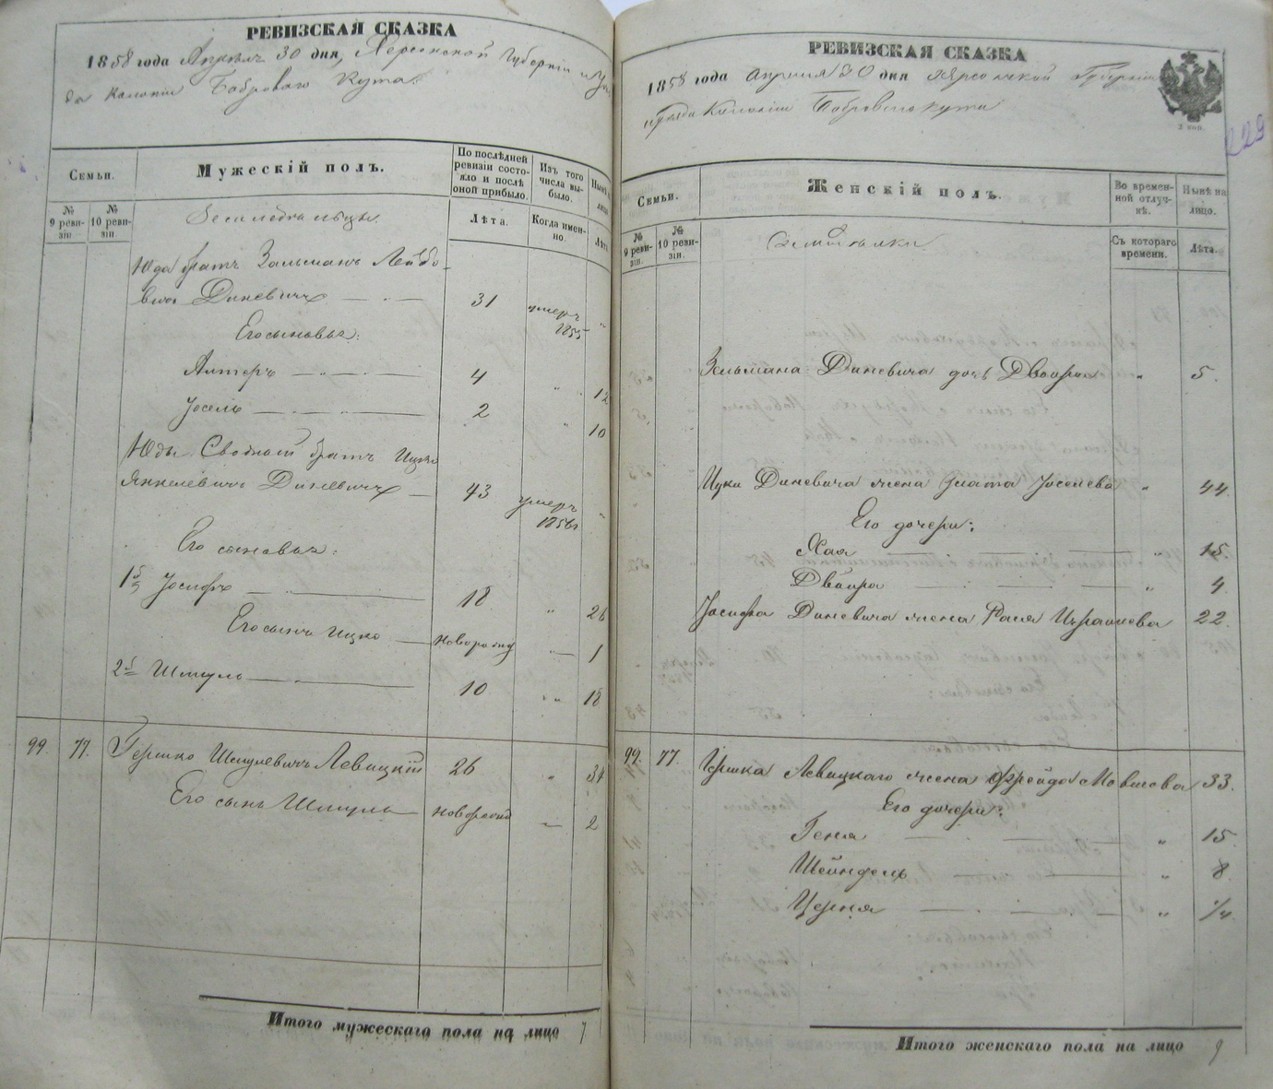 РЕВИЗСКАЯ СКАЗКА
1858 года Апреля 30 дня, Херсонской Губернии и Уѣз
да Колоніи Боброваго Кута.
Семьи.
Мужескій полъ.
По послѣдней ревизіи состояло и послѣ оной прибыло.
Изъ того числа выбыло.
Нынѣ
лицо.
№ 9 ревизіи
№ 10 ревизіи.
Лѣта.
Когда именно.
Лѣта
Земледѣльцы.
Юда братъ Зальманъ Лейбо-
вичъ Диневичъ — 31 умеръ 1855 "
Его сыновья:
Алтеръ — 4 " 12
Іосель — 2 " 10
Юды Сводный братъ Ицко
Янкелевичъ Диневичъ — 43 умеръ 1856 "
Его сыновья:
1й Іосифъ — 18 " 26
Его сынъ Ицко — новорожд — 1
2й Шмуль — 10 " 18
99 77. Гершко Шмулевичъ Левицкій 26 " 34
Его сынъ Шмуль — новорожд — 2
Итого мужескаго пола на лицо 7
РЕВИЗСКАЯ СКАЗКА
1858 года Апреля 30 дня Херсонской Губерніи
и уѣзда Колоніи Бобровокута
3 коп.
229
Семьи.
Женскій полъ.
Во временной отлучкѣ.
Нынѣ на лицо.
№ 9 ревизіи.
№ 10 ревизіи.
Съ котораго времени.
Лѣта.
Зельмана Диневича дочь Двойра " 5.
Ицки Диневича жена Злата Іоселева " 44.
Его дочери:
Хая — " 15.
Двойра — " 4
Іосифа Диневича жена Рапля Израилева 22.
99. 77. Гершка Левицкаго жена Фрейда Мовшева 33.
Его дочери:
Геня — " 15
Шейндель — " 8.
Черня — " 1/4
Итого женскаго пола на лицо 9